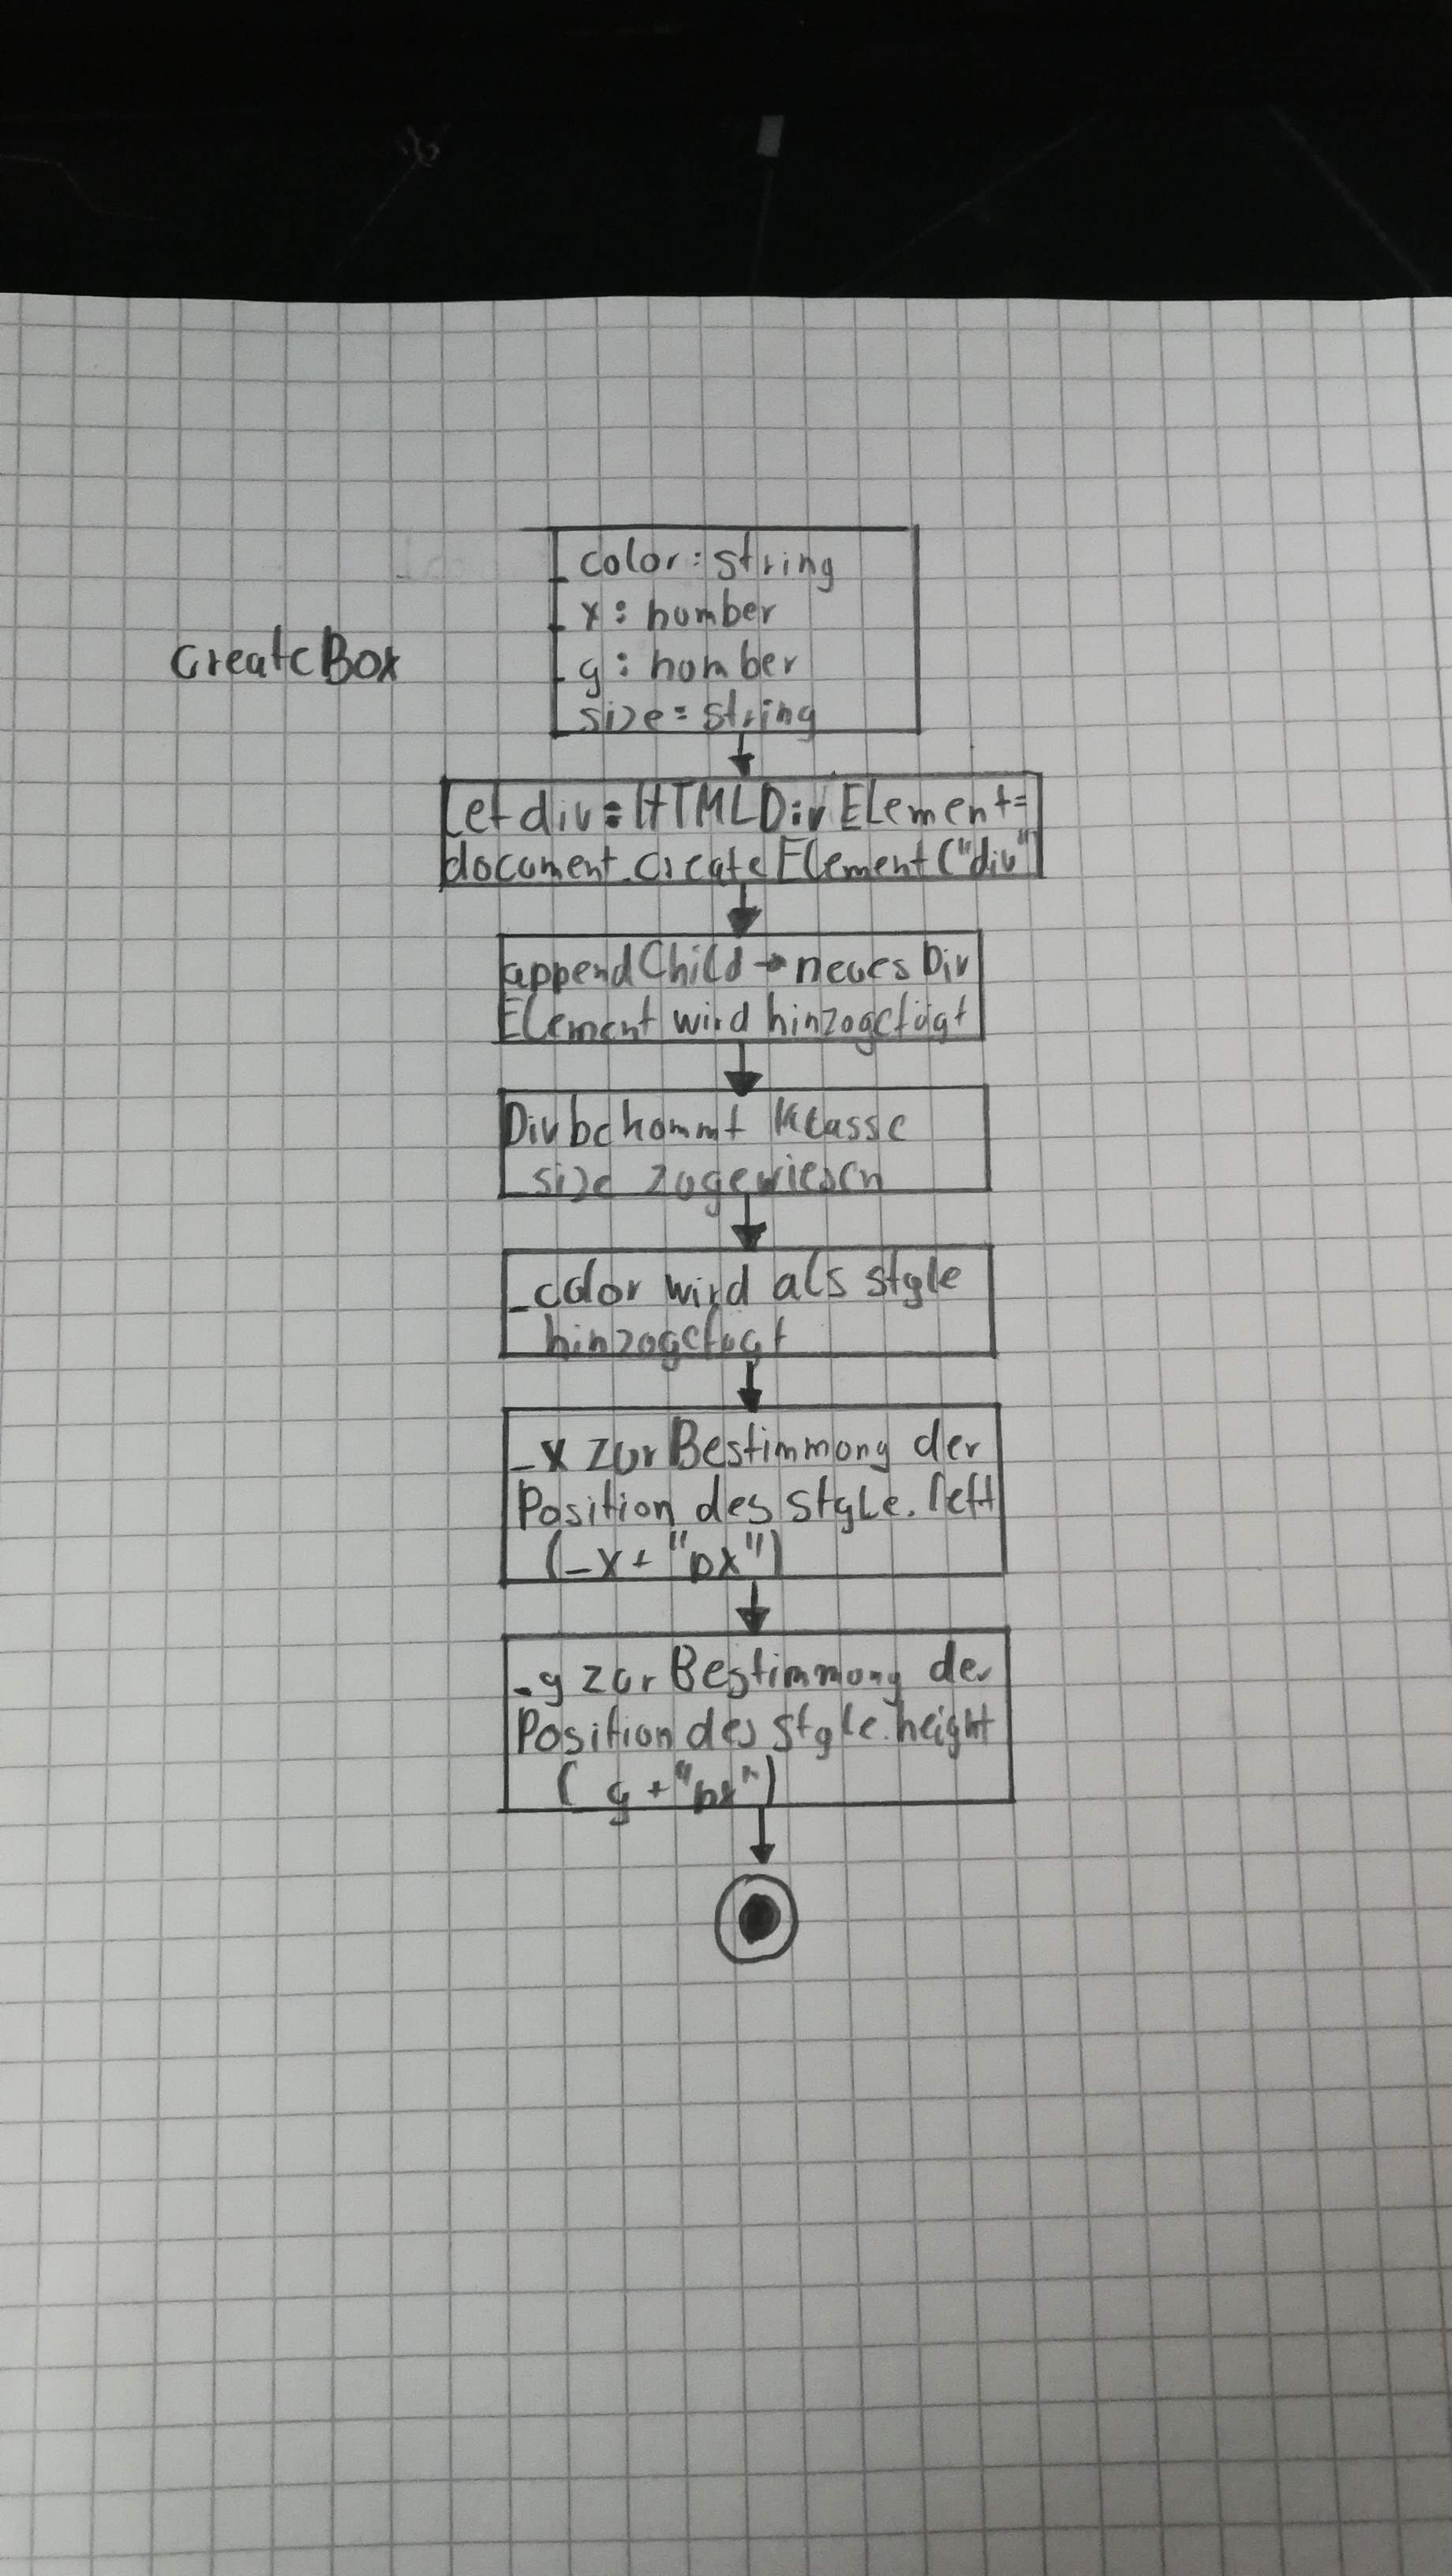 createBox
_color: string
_x: number
_y: number
_size: string
let div: HTMLDivElement =
document.createElement("div")
appendChild → neues Div
Element wird hinzugefügt
Div bekommt Klasse
_size zugewiesen
_color wird als style
hinzugefügt
_x zur Bestimmung der
Position des style.left
(_x + "px")
_y zur Bestimmung der
Position des style.height
(_y + "px")